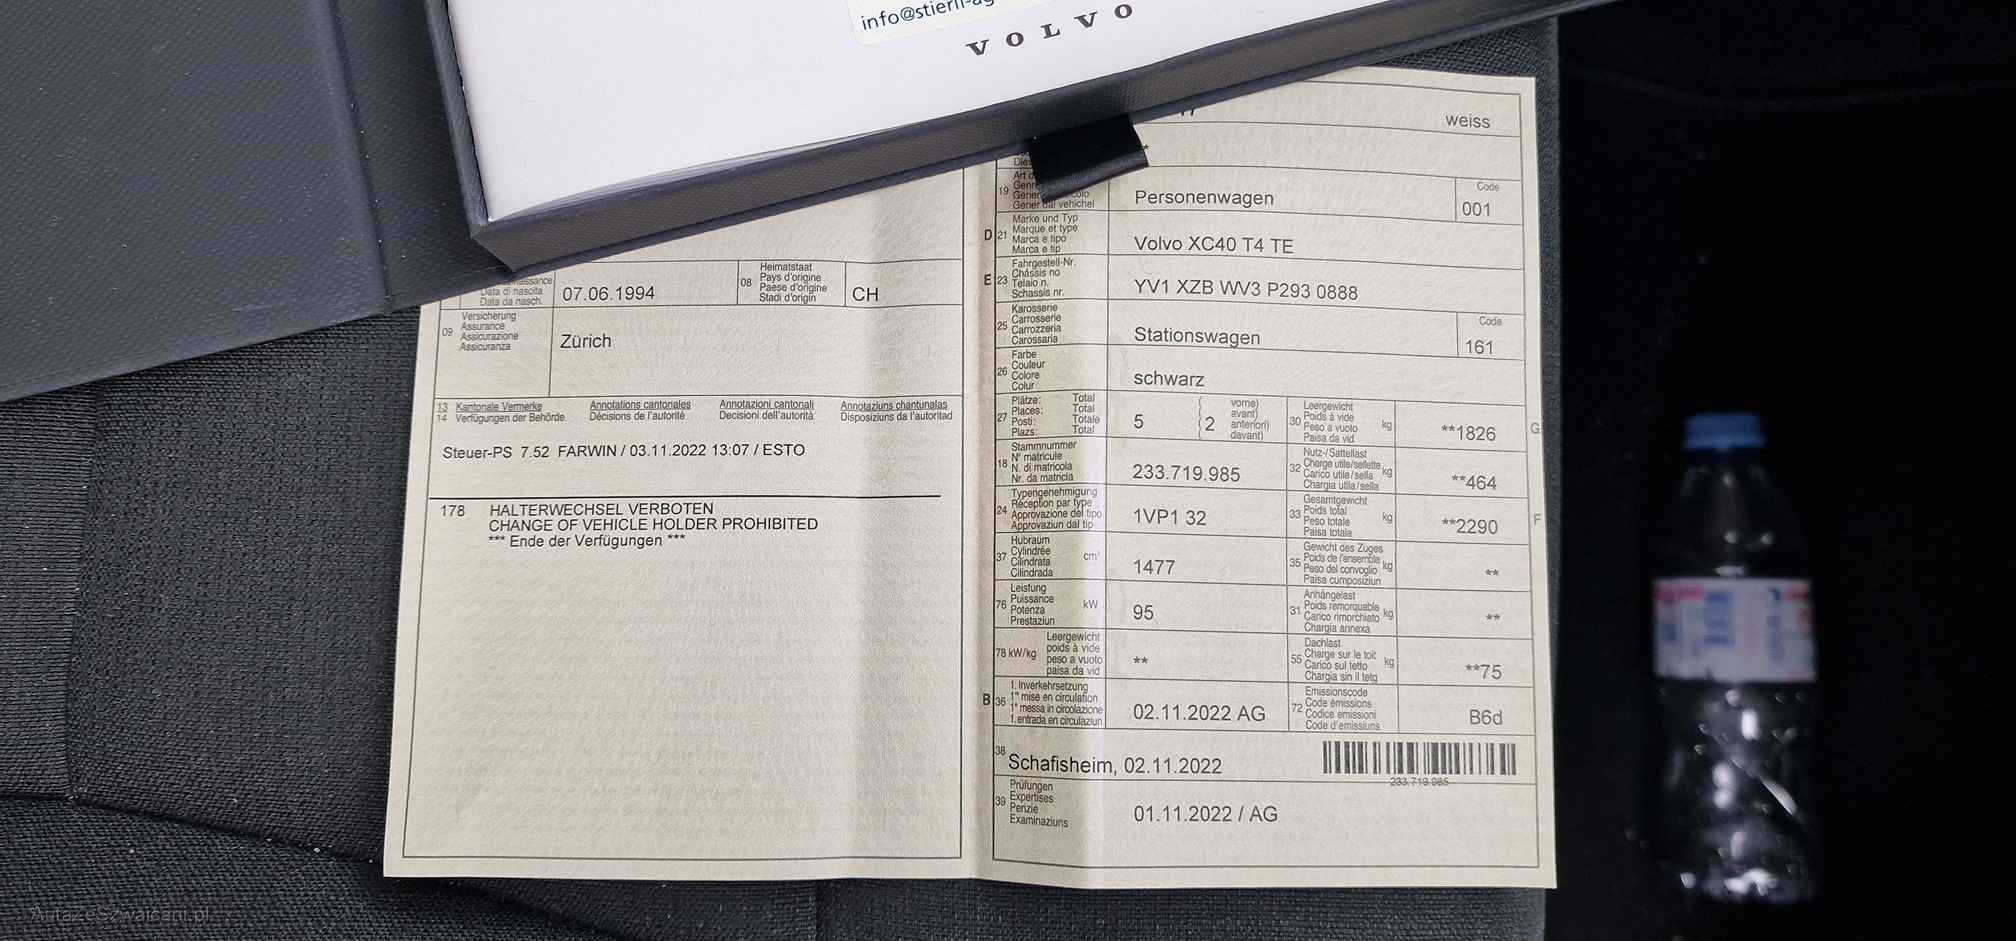 info@stierli-ag
VOLVO
weiss
Art
19 Personenwagen
Code
001
Marke und Typ
D 21 Marque et type
Marca e tipo
Marca e tip
Volvo XC40 T4 TE
Fahrgestell-Nr.
E 23 Châssis no
Telaio n.
Schassis nr.
YV1 XZB WV3 P293 0888
Karosserie
25 Carrosserie
Carrozzeria
Carossaria
Stationswagen
Code
161
Farbe
26 Couleur
Colore
Colur
schwarz
Plätze: Total
27 Places: Total
Posti: Totale
Plazs: Total
5
2
vorne)
avant)
anteriori)
davant)
30 Leergewicht
Poids à vide
Peso a vuoto
Paisa da vid
kg
**1826
G
Stammnummer
18 N° matricule
N. di matricola
Nr. da matricla
233.719.985
32 Nutz-/Sattellast
Charge utile/sellette
Carico utile/sella
Chargia utila/sella
kg
**464
Typengenehmigung
24 Réception par type
Approvazione del tipo
Approvaziun dal tip
1VP1 32
33 Gesamtgewicht
Poids total
Peso totale
Paisa totala
kg
**2290
F
Hubraum
37 Cylindrée
Cilindrata
Cilindrada
cm³
1477
35 Gewicht des Zuges
Poids de l'ensemble
Peso del convoglio
Paisa cumposiziun
kg
**
Leistung
76 Puissance
Potenza
Prestaziun
kW
95
31 Anhängelast
Poids remorquable
Carico rimorchiato
Chargia annexa
kg
**
78 kW/kg
Leergewicht
poids à vide
peso a vuoto
paisa da vid
**
55 Dachlast
Charge sur le toit
Carico sul tetto
Chargia sin il tetg
kg
**75
B 36
1. Inverkehrsetzung
1re mise en circulation
1a messa in circolazione
1. entrada en circulaziun
02.11.2022 AG
72 Emissionscode
Code émissions
Codice emissioni
Code d'emissiuns
B6d
38
Schafisheim, 02.11.2022
233.719.985
39 Prüfungen
Expertises
Perizie
Examinaziuns
01.11.2022 / AG
Data di nascita
Data da nasch.
07.06.1994
08 Heimatstaat
Pays d'origine
Paese d'origine
Stadi d'origin
CH
09 Versicherung
Assurance
Assicurazione
Assicuranza
Zürich
13 Kantonale Vermerke Annotations cantonales Annotazioni cantonali Annotaziuns chantunalas
14 Verfügungen der Behörde Décisions de l'autorité Decisioni dell'autorità Disposiziuns da l'autoritad
Steuer-PS 7.52 FARWIN / 03.11.2022 13:07 / ESTO
178 HALTERWECHSEL VERBOTEN
CHANGE OF VEHICLE HOLDER PROHIBITED
*** Ende der Verfügungen ***
AutaZeSzwajcarii.pl